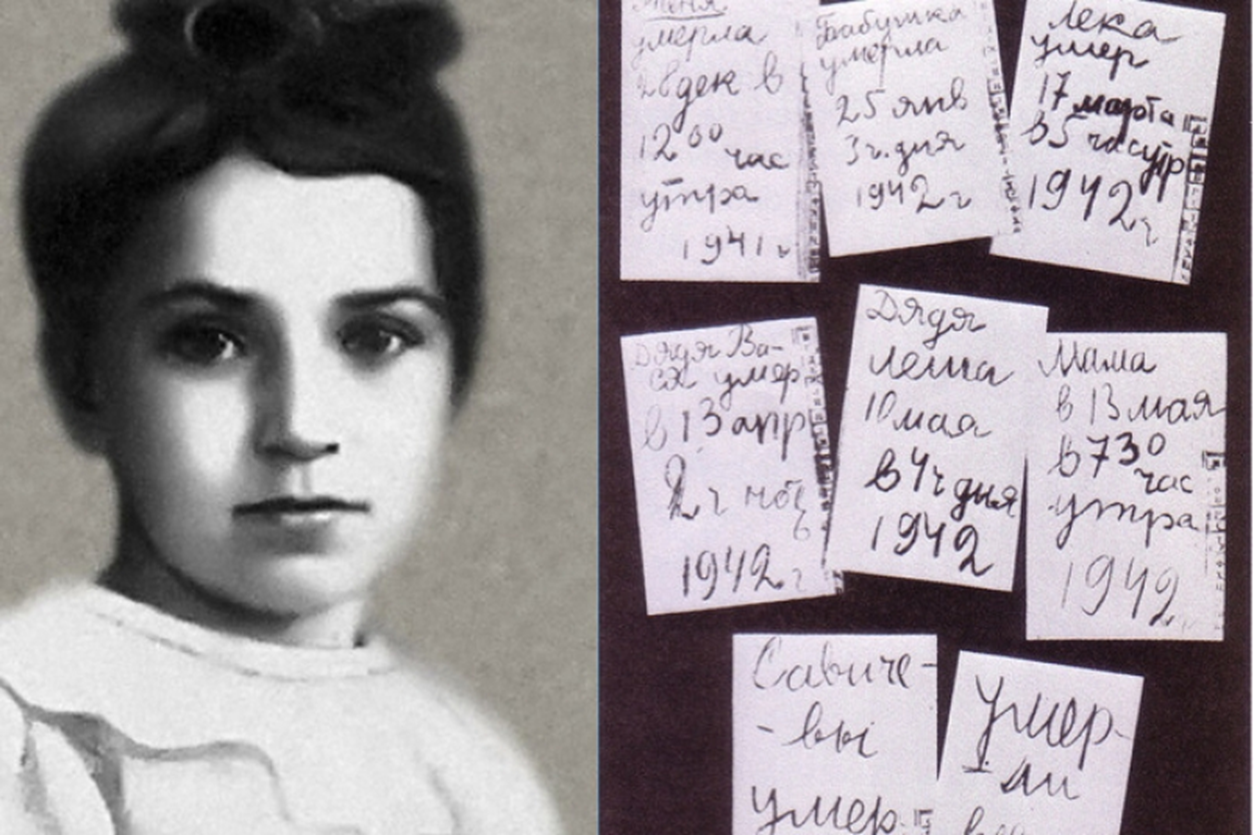 Женя
умерла
28 дек в
12 00 час
утра
1941 г
Бабушка
умерла
25 янв
3 ч. дня
1942 г
Лека
умер
17 марта
в 5 час утр
1942 г
Дядя Ва-
ся умер
в 13 апр
2 ч ноч
1942 г
Дядя
Леша
10 мая
в 4 ч дня
1942
Мама
в 13 мая
в 7 30
час
утра
1942 г
Савиче-
-вы
умер
Умер-
ли